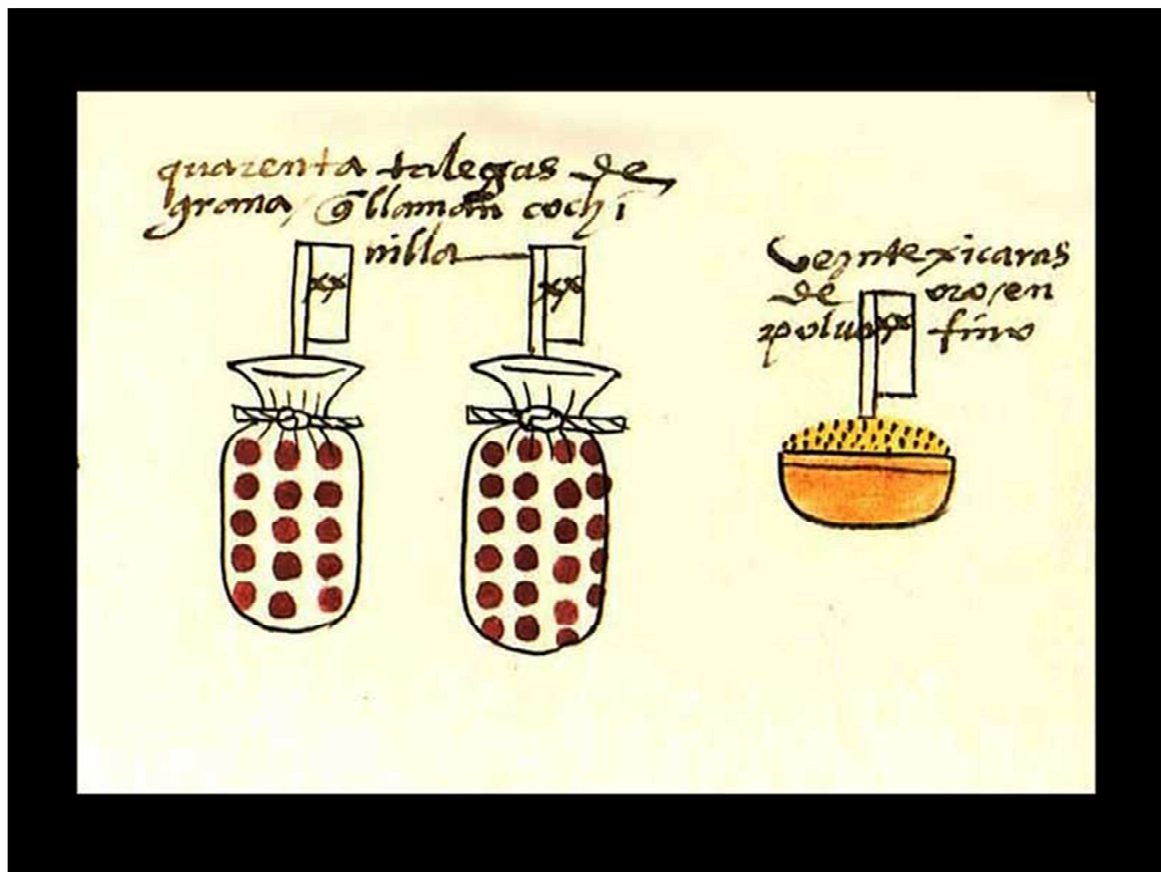 quarenta talegas de
grana / q̃ llaman cochi
nilla
xx
xx
veynte xicaras
de oro en
poluo fino
xx